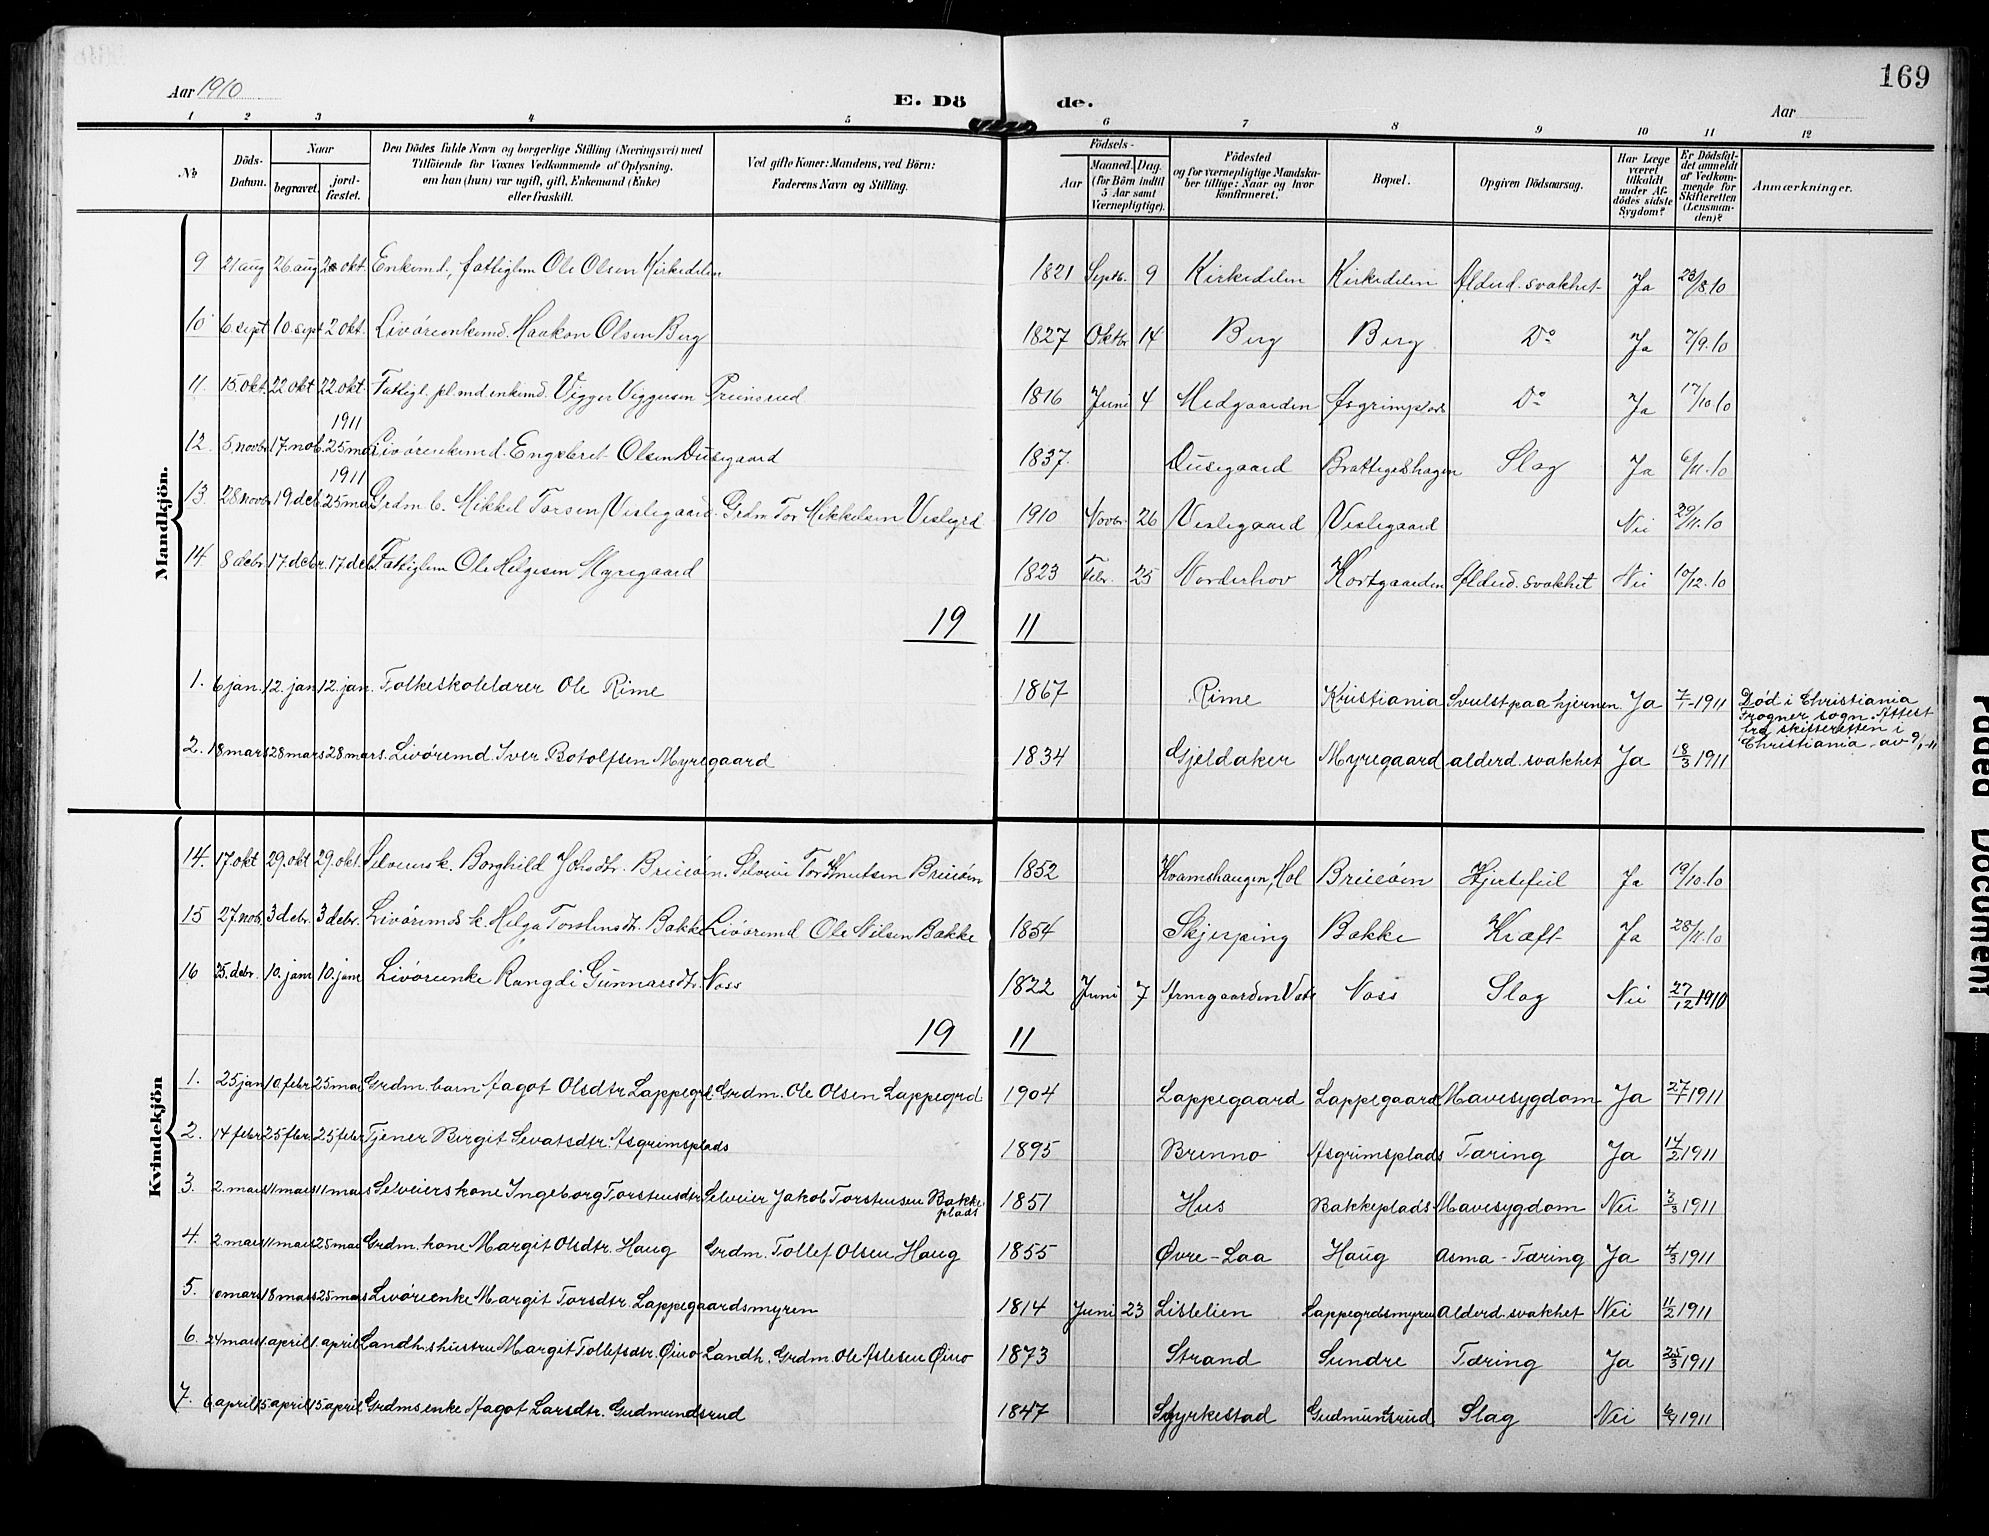 169
Aar 1910
E. Döde.
Aar
1 2 3 4 5 6 7 8 9 10 11 12
No
Döds-Datum.
Naar
begravet.
jord-fæstet.
Den Dödes fulde Navn og borgerlige Stilling (Næringsvei) med
Tilföiende for Voxnes Vedkommende af Oplysning,
om han (hun) var ugift, gift, Enkemand (Enke)
eller fraskilt.
Ved gifte Koner: Mandens, ved Börn:
Faderens Navn og Stilling.
Födsels-
Aar
Maaned. Dag.
(for Börn indtil
5 Aar samt
Værnepligtige).
Födested
og for værnepligtige Mandska-
ber tillige: Naar og hvor
konfirmeret.
Bopæl.
Opgiven Dödsaarsag.
Har Læge
været
tilkaldt
under Af-
dödes sidste
Sygdom?
Er Dödsfal-
det anmeldt
af Vedkom-
mende for
Skifteretten
(Lensman-
den)?
Anmærkninger.
Mandkjön.
9 21 aug 26 aug 2 okt. Enkemd., fattiglem Ole Olsen Kirkedelen 1821 Septb. 9 Kirkedelen Kirkedelen Alderd. svakhet Ja 23/8.10
10 6 sept 10 sept 2 okt. Livørenkemd. Haakon Olsen Berg 1827 Oktbr 14 Berg Berg Do Ja 7/9.10
11. 15. okt. 22 okt 22 okt. Fattigl. pl. md enkemd. Vigger Viggersen Prinsrud 1816 Juni 4 Medgaarden Asgrimplads Do Ja 17/10 10
1911
12. 5 novbr. 17. nob. 25 mai Livørenkemd. Engebret Olsen Dusegaard 1837. Dusegaard Brattegeshagen Slag Ja 6/11.10
1911
13. 28 novbr. 19 deb. 25 mai Grdm b. Mikkel Torsen Veslegaard. Grdm Tor Mikkelsen Veslegrd 1910 Novbr. 26 Veslegaard Veslegaard Nei 29/11.10
14 8 debr. 17 debr. 17. deb. Fattiglem Ole Helgesen Myregaard 1823 Febr. 25 Norderhov Kortgaarden Alderd. svakhet Nei 10/12.10
19 11
1. 6 jan. 12. jan 12. jan. Folkeskolelærer Ole Rime 1867 Rime Kristiania Svulst paa hjernen. Ja 7/1-1911 Død i Christiania
Frogner sogn. Attest
fra skifteretten i
Christiania av 9/1-11
2. 18 mars 28 mars 28 mars. Livøremd Iver Botolfsen Myregaard 1834 Gjeldaker Myregaard alderd. svakhet Ja 18/3 1911
Kvindekjön
14. 17. okt 29. okt 29. okt. Selveiersk. Borghild Johsdtr. Breieøien. Selveier Tor Knutsen Breieøin 1852 Kvamshaugen, Hol Breieøin Hjertefeil Ja 19/10.10
15 27. nob. 3 debr. 3 debr. Livøremds k. Helga Torstensdtr. Bakke Livøremd Ole Nilsen Bakke 1854 Skjerping Bakke Kræft Ja 28/11.10
16 25. debr. 10. jan 10. jan Livørenke Rangdi Gunnarsdtr. Noss 1822 Juni 7 Arnegaarden Vats Noss Slag Nei 27/12 1910
19 11
1. 25 jan 10 febr 25 mai Grdm. barn Aagot Olsdtr Lappegrd. Grdm. Ole Olsen Lappegrd 1904 Lappegaard Lappegaard Mavesygdom Ja 27/1 1911
2. 14 febr 25 febr 25 febr Tjener Birgit Sevatsdtr. Asgrimsplads 1895 Brenno Asgrimsplads Tæring Ja 14/2 1911
3. 2. mars 11 mars 11 mars Selveiers kone Ingeborg Torstensdtr. Selveier Jakob Torstensen Bakke
plads 1851 Hus Bakkeplads Mavesygdom Nei 3/3 1911
4. 2 mars 11 mars 25 mai Grdm. kone Margit Olsdtr. Haug Grdm. Tollef Olsen Haug 1855 Øvre-Laa Haug Asma-Tæring Ja 4/3 1911
5. 10 mars 18 mars 25 mars Livørenke Margit Torsdtr. Lappegaardsmyren 1814 Juni 23 Listelien Lappegrdsmyren Alderd. svakhet Nei 11/2 1911
6. 24 mars 1. april 1. april Landh.s hustru Margit Tollefsdtr. Øino Landh. Grdm. Ole Aslesen Øino 1873 Strand Sundre Tæring Ja 25/3 1911
7. 6 april 15 april 15 april Grdms enke Aagot Larsdtr. Gudmundsrud 1847 Styrkestad Gudmunsrud Slag Nei 6/4 1911